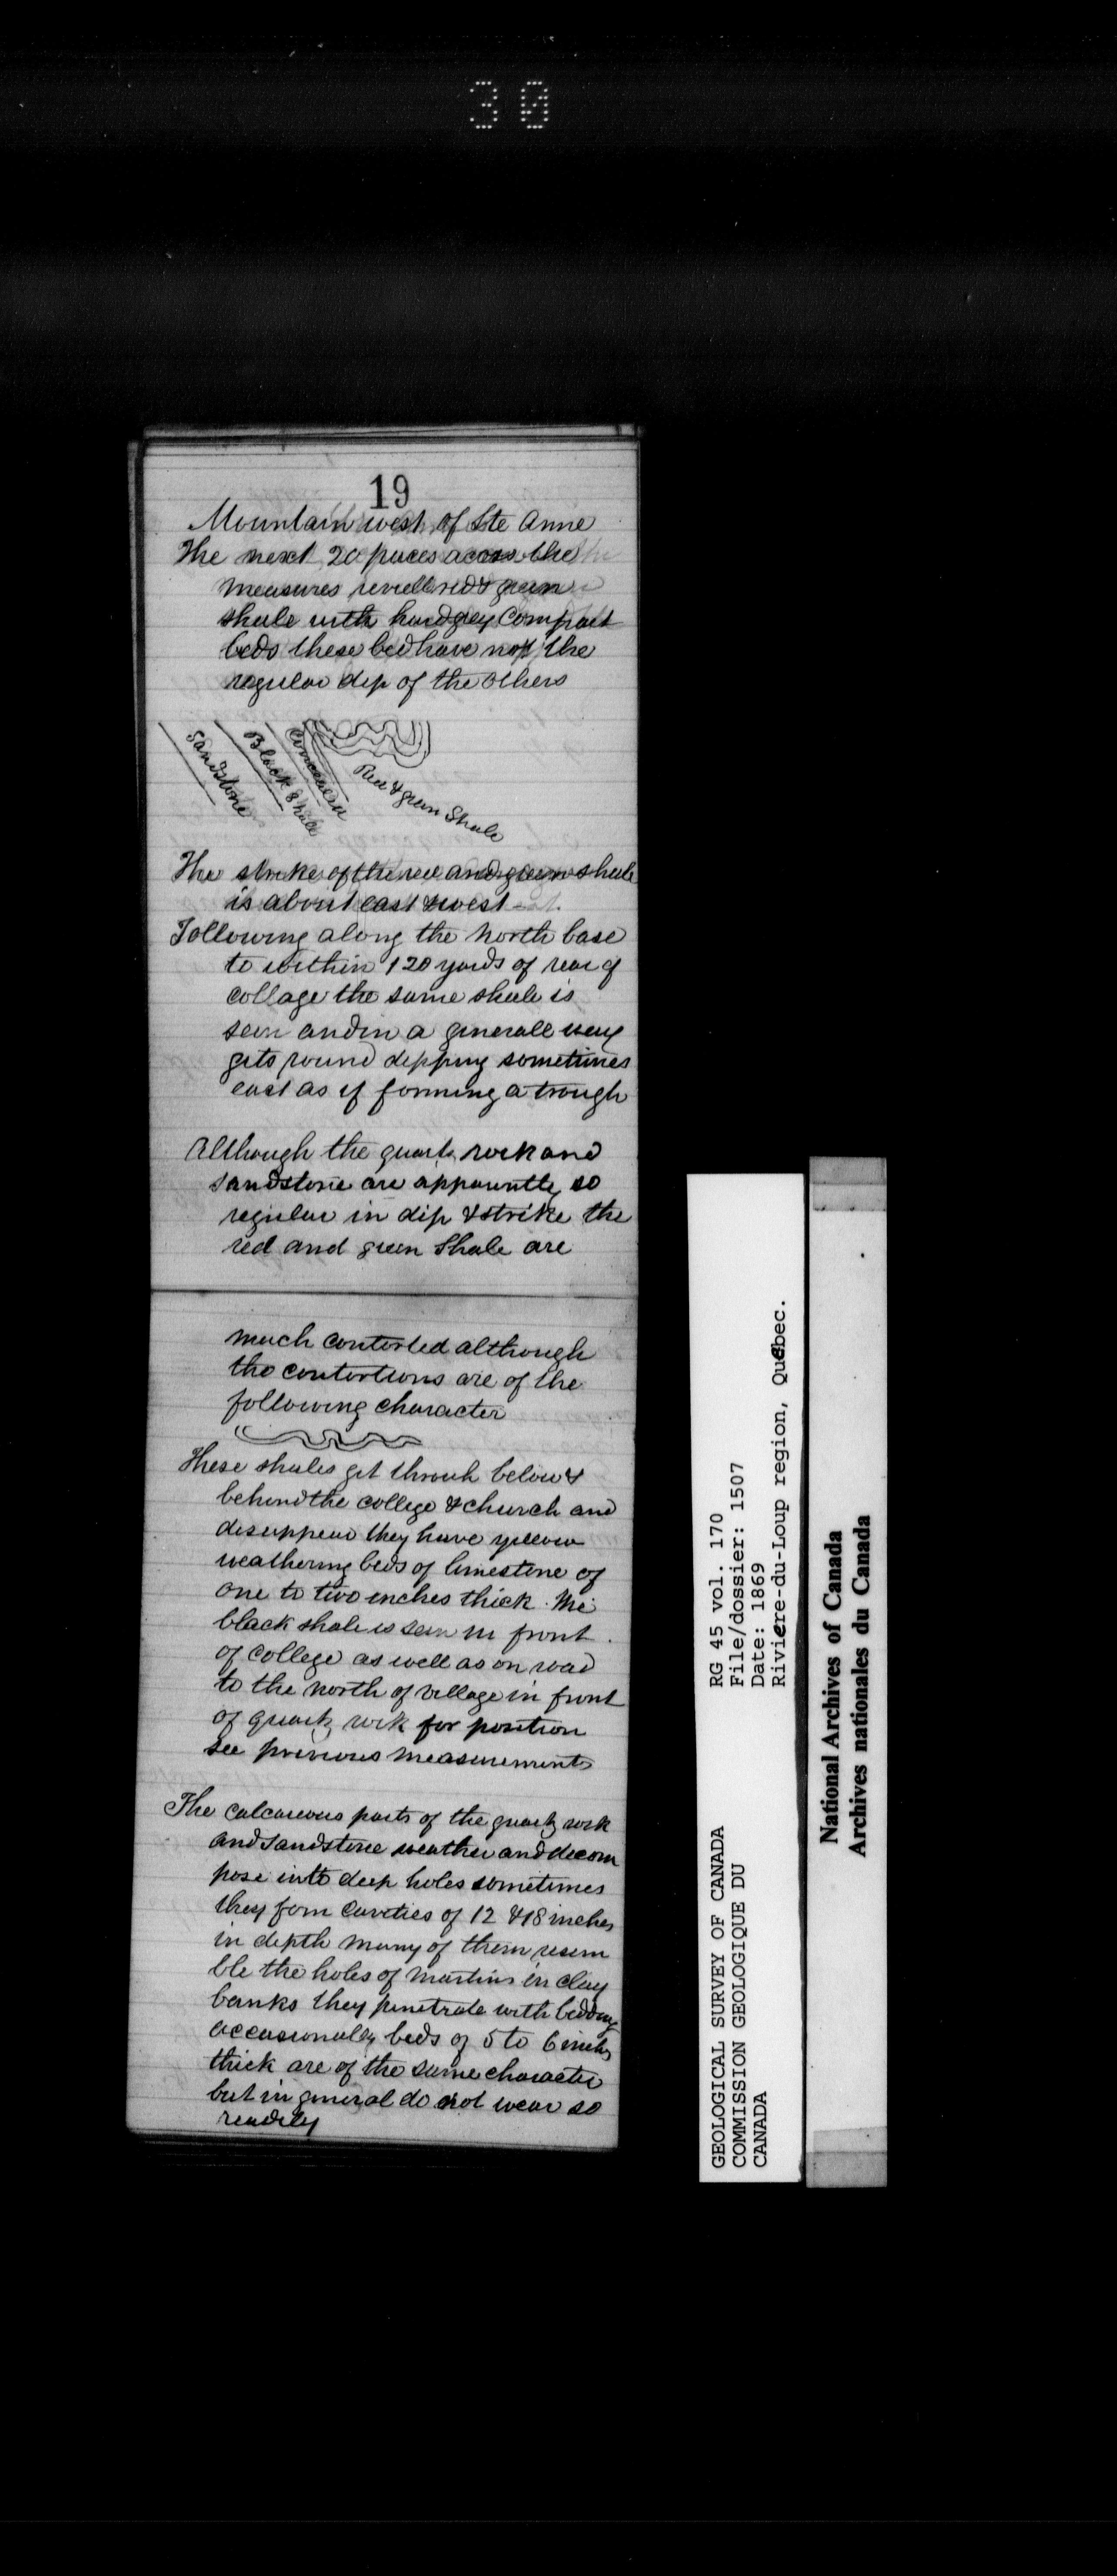 30
19
Mountain west of Ste Anne
The next 20 paces across the
measures reveal red & green
shale with hard grey compact
beds these bed have not the
regular dip of the others
Sandstone
Black Shale
Concealed
Red & green Shale
The strike of the red and green shale
is about east & west
Following along the north base
to within 120 yards of rear of
collage the same shale is
seen and in a generall way
gets round dipping sometimes
east as if forming a trough
Although the quartz rock and
sandstone are apparently so
regular in dip & strike the
red and green Shale are
much contorted although
the contortions are of the
following character
These shales get throuh below &
behind the college & church and
disappear they have yellow
weathering beds of limestone of
one to two inches thick. The
black shale is seen in front
of college as well as on road
to the north of village in front
of quartz rock for position
see previous measurements
The calcareous parts of the quartz rock
and sandstone weather and decom
pose into deep holes sometimes
they form cavities of 12 & 18 inches
in depth many of them resem
ble the holes of martins in clay
banks they penetrate with bedding
occasionally beds of 5 to 6 inches
thick are of the same character
but in general do not wear so
readily
GEOLOGICAL SURVEY OF CANADA
COMMISSION GEOLOGIQUE DU
CANADA
RG 45 vol. 170
File/dossier: 1507
Date: 1869
Rivière-du-Loup region, Québec.
National Archives of Canada
Archives nationales du Canada